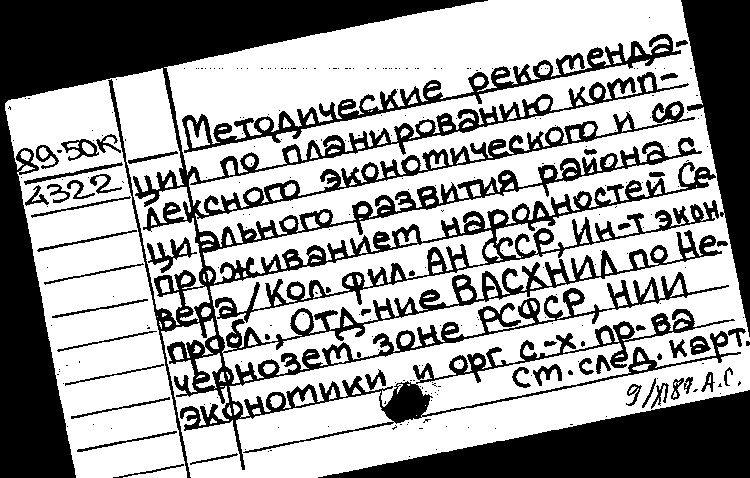 89-50к
4322
Методические рекоменда-
ции по планированию комп-
лексного экономического и со-
циального развития района с
проживанием народностей Се-
вера/Кол. фил. АН СССР, Ин-т экон.
пробл., Отд-ние ВАСХНИЛ по Не-
чернозем. зоне РСФСР, НИИ
экономики и орг. с.-х. пр-ва
См. след. карт.
9/XI89. А.С.